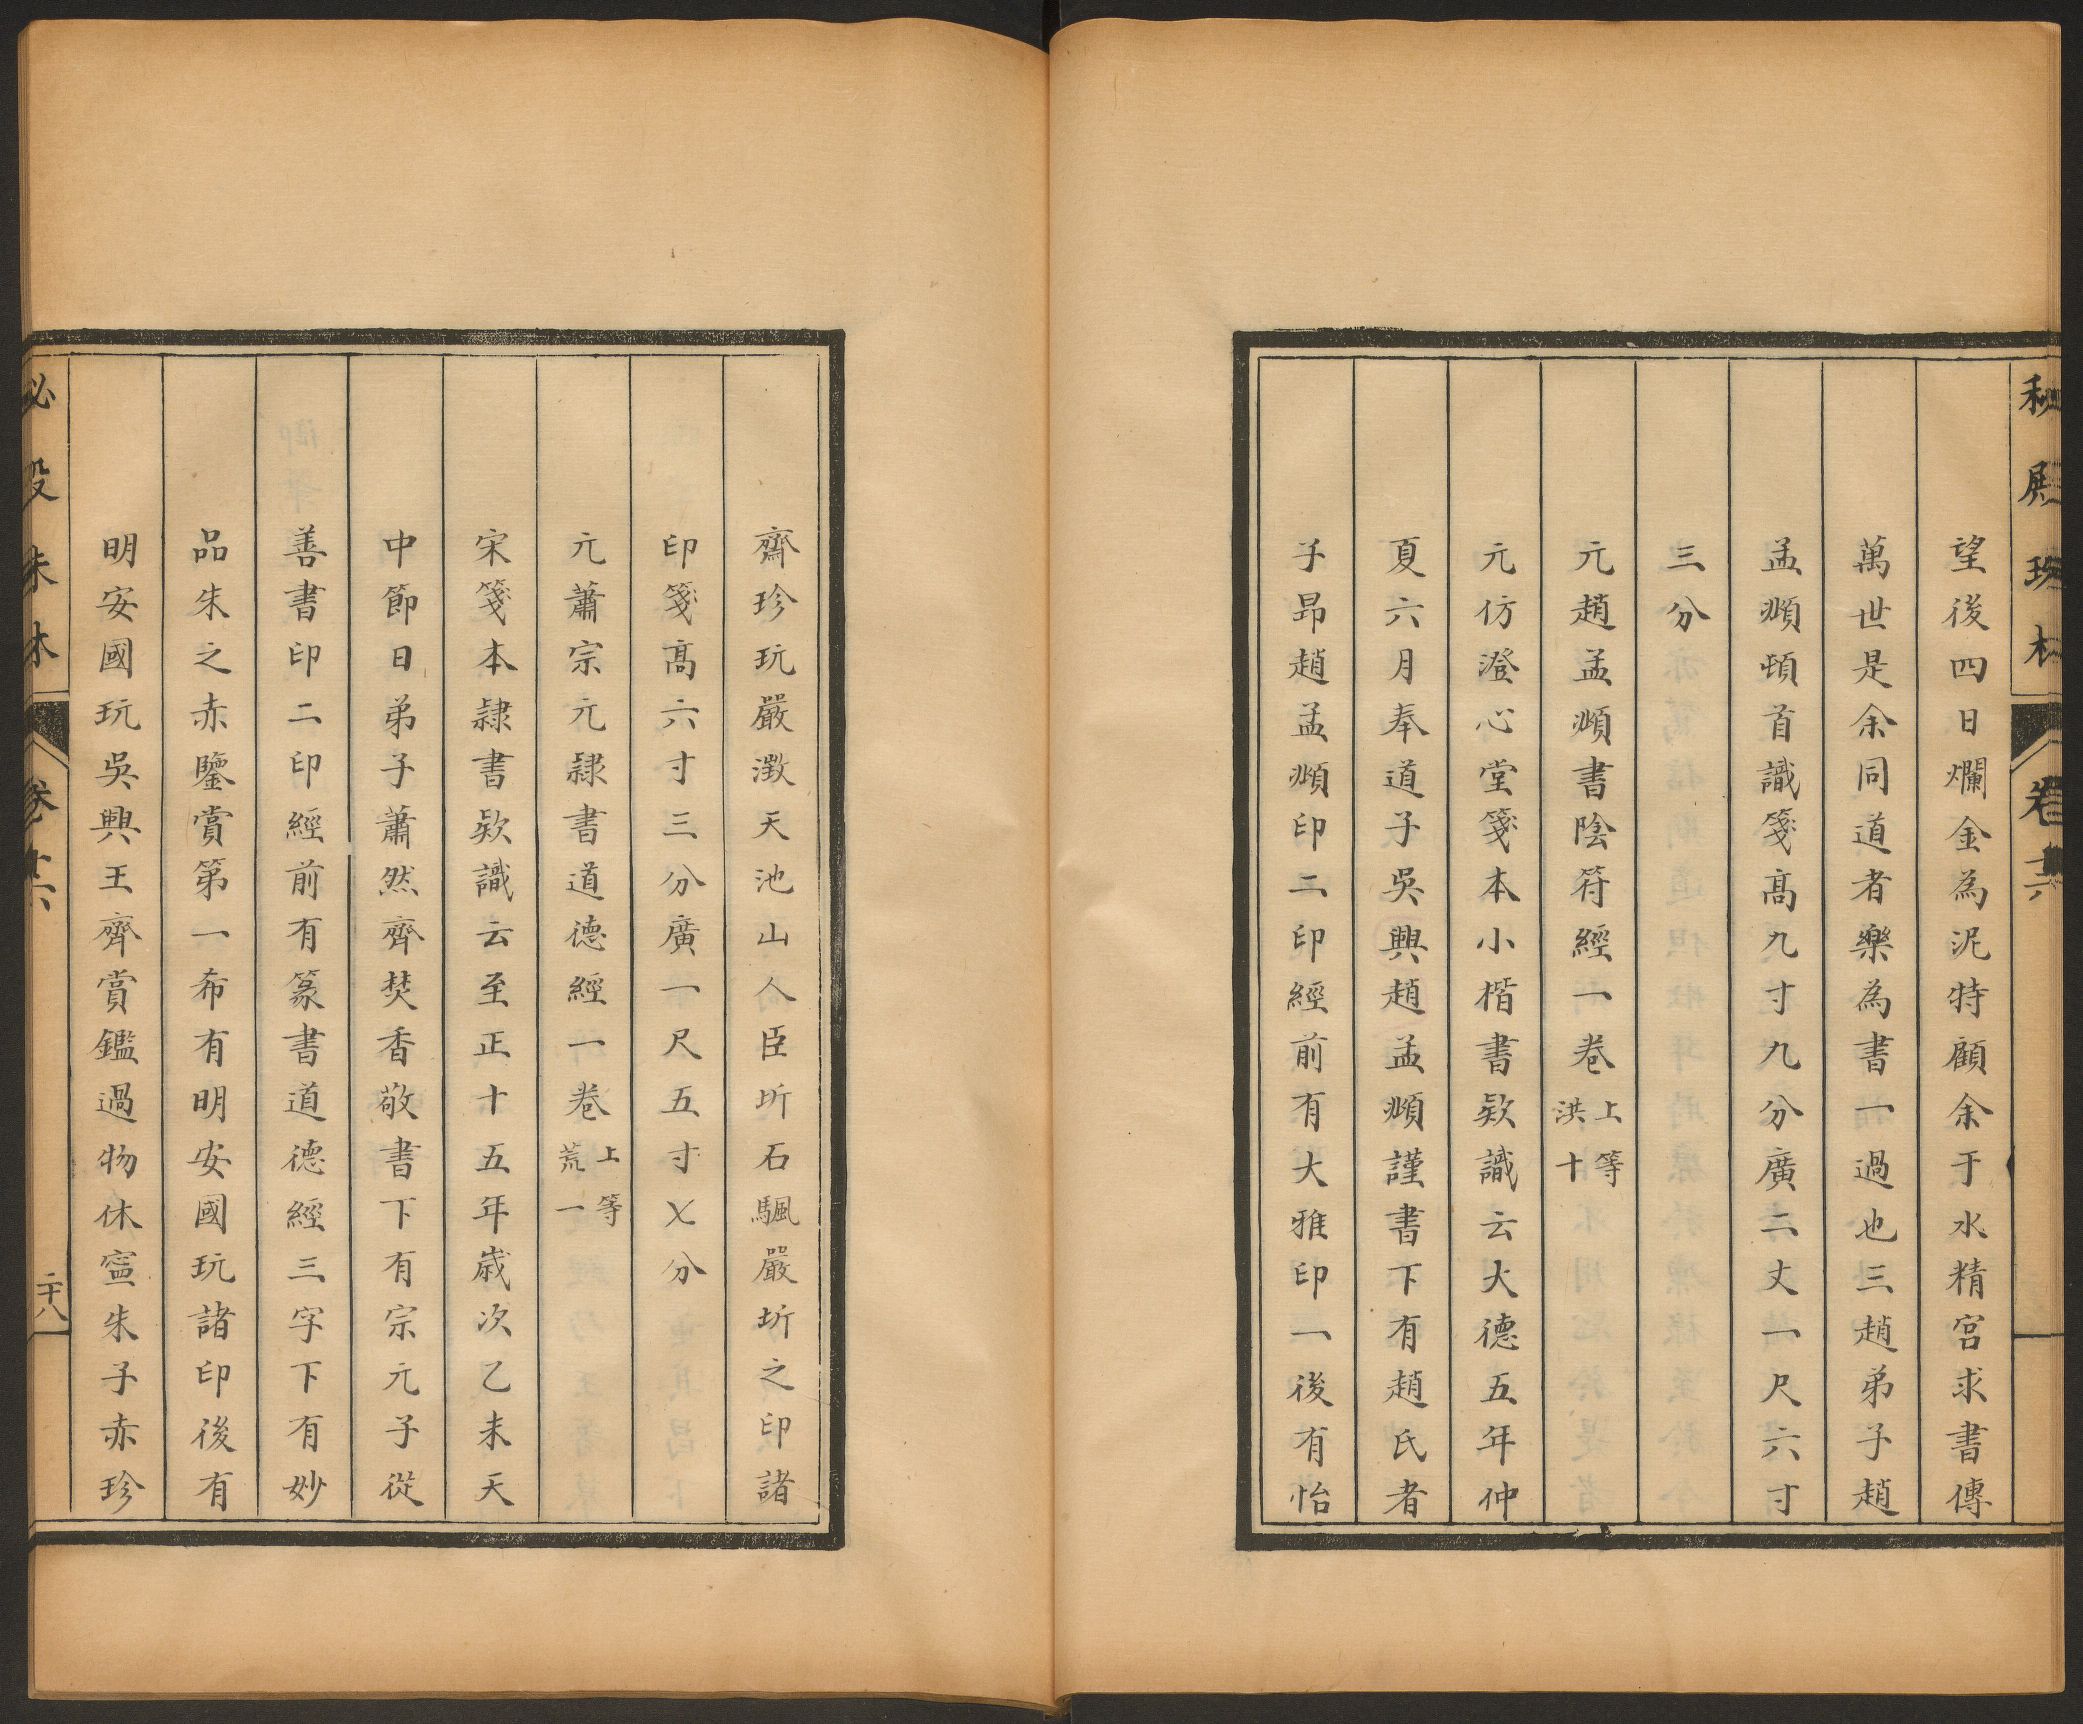 望後四日爛金為泥特顧余于水精宮求書傳
萬世是余同道者樂為書一過也三趙弟子趙
孟頫頓首識箋髙九寸九分廣二丈一尺六寸
三分
元趙孟頫書陰符經一卷上等洪十
元仿澄心堂箋本小楷書欵識云大德五年仲
夏六月奉道子吳興趙孟頫謹書下有趙氏者
子昂趙孟頫印二印經前有大雅印一後有怡
齋珍玩嚴澂天池山人臣圻石颿嚴圻之印諸
印箋髙六寸三分廣一尺五寸乂分
元蕭宗元隷書道德經一卷上等荒一
宋箋本隷書欵識云至正十五年歲次乙未天
中節日弟子蕭然齊焚香敬書下有宗元子從
善書印二印經前有篆書道德經三字下有妙
品朱之赤鑒賞第一希有明安國玩諸印後有
明安國玩吳興王齊賞鑑過物休寍朱子赤珍
卷六
二十八